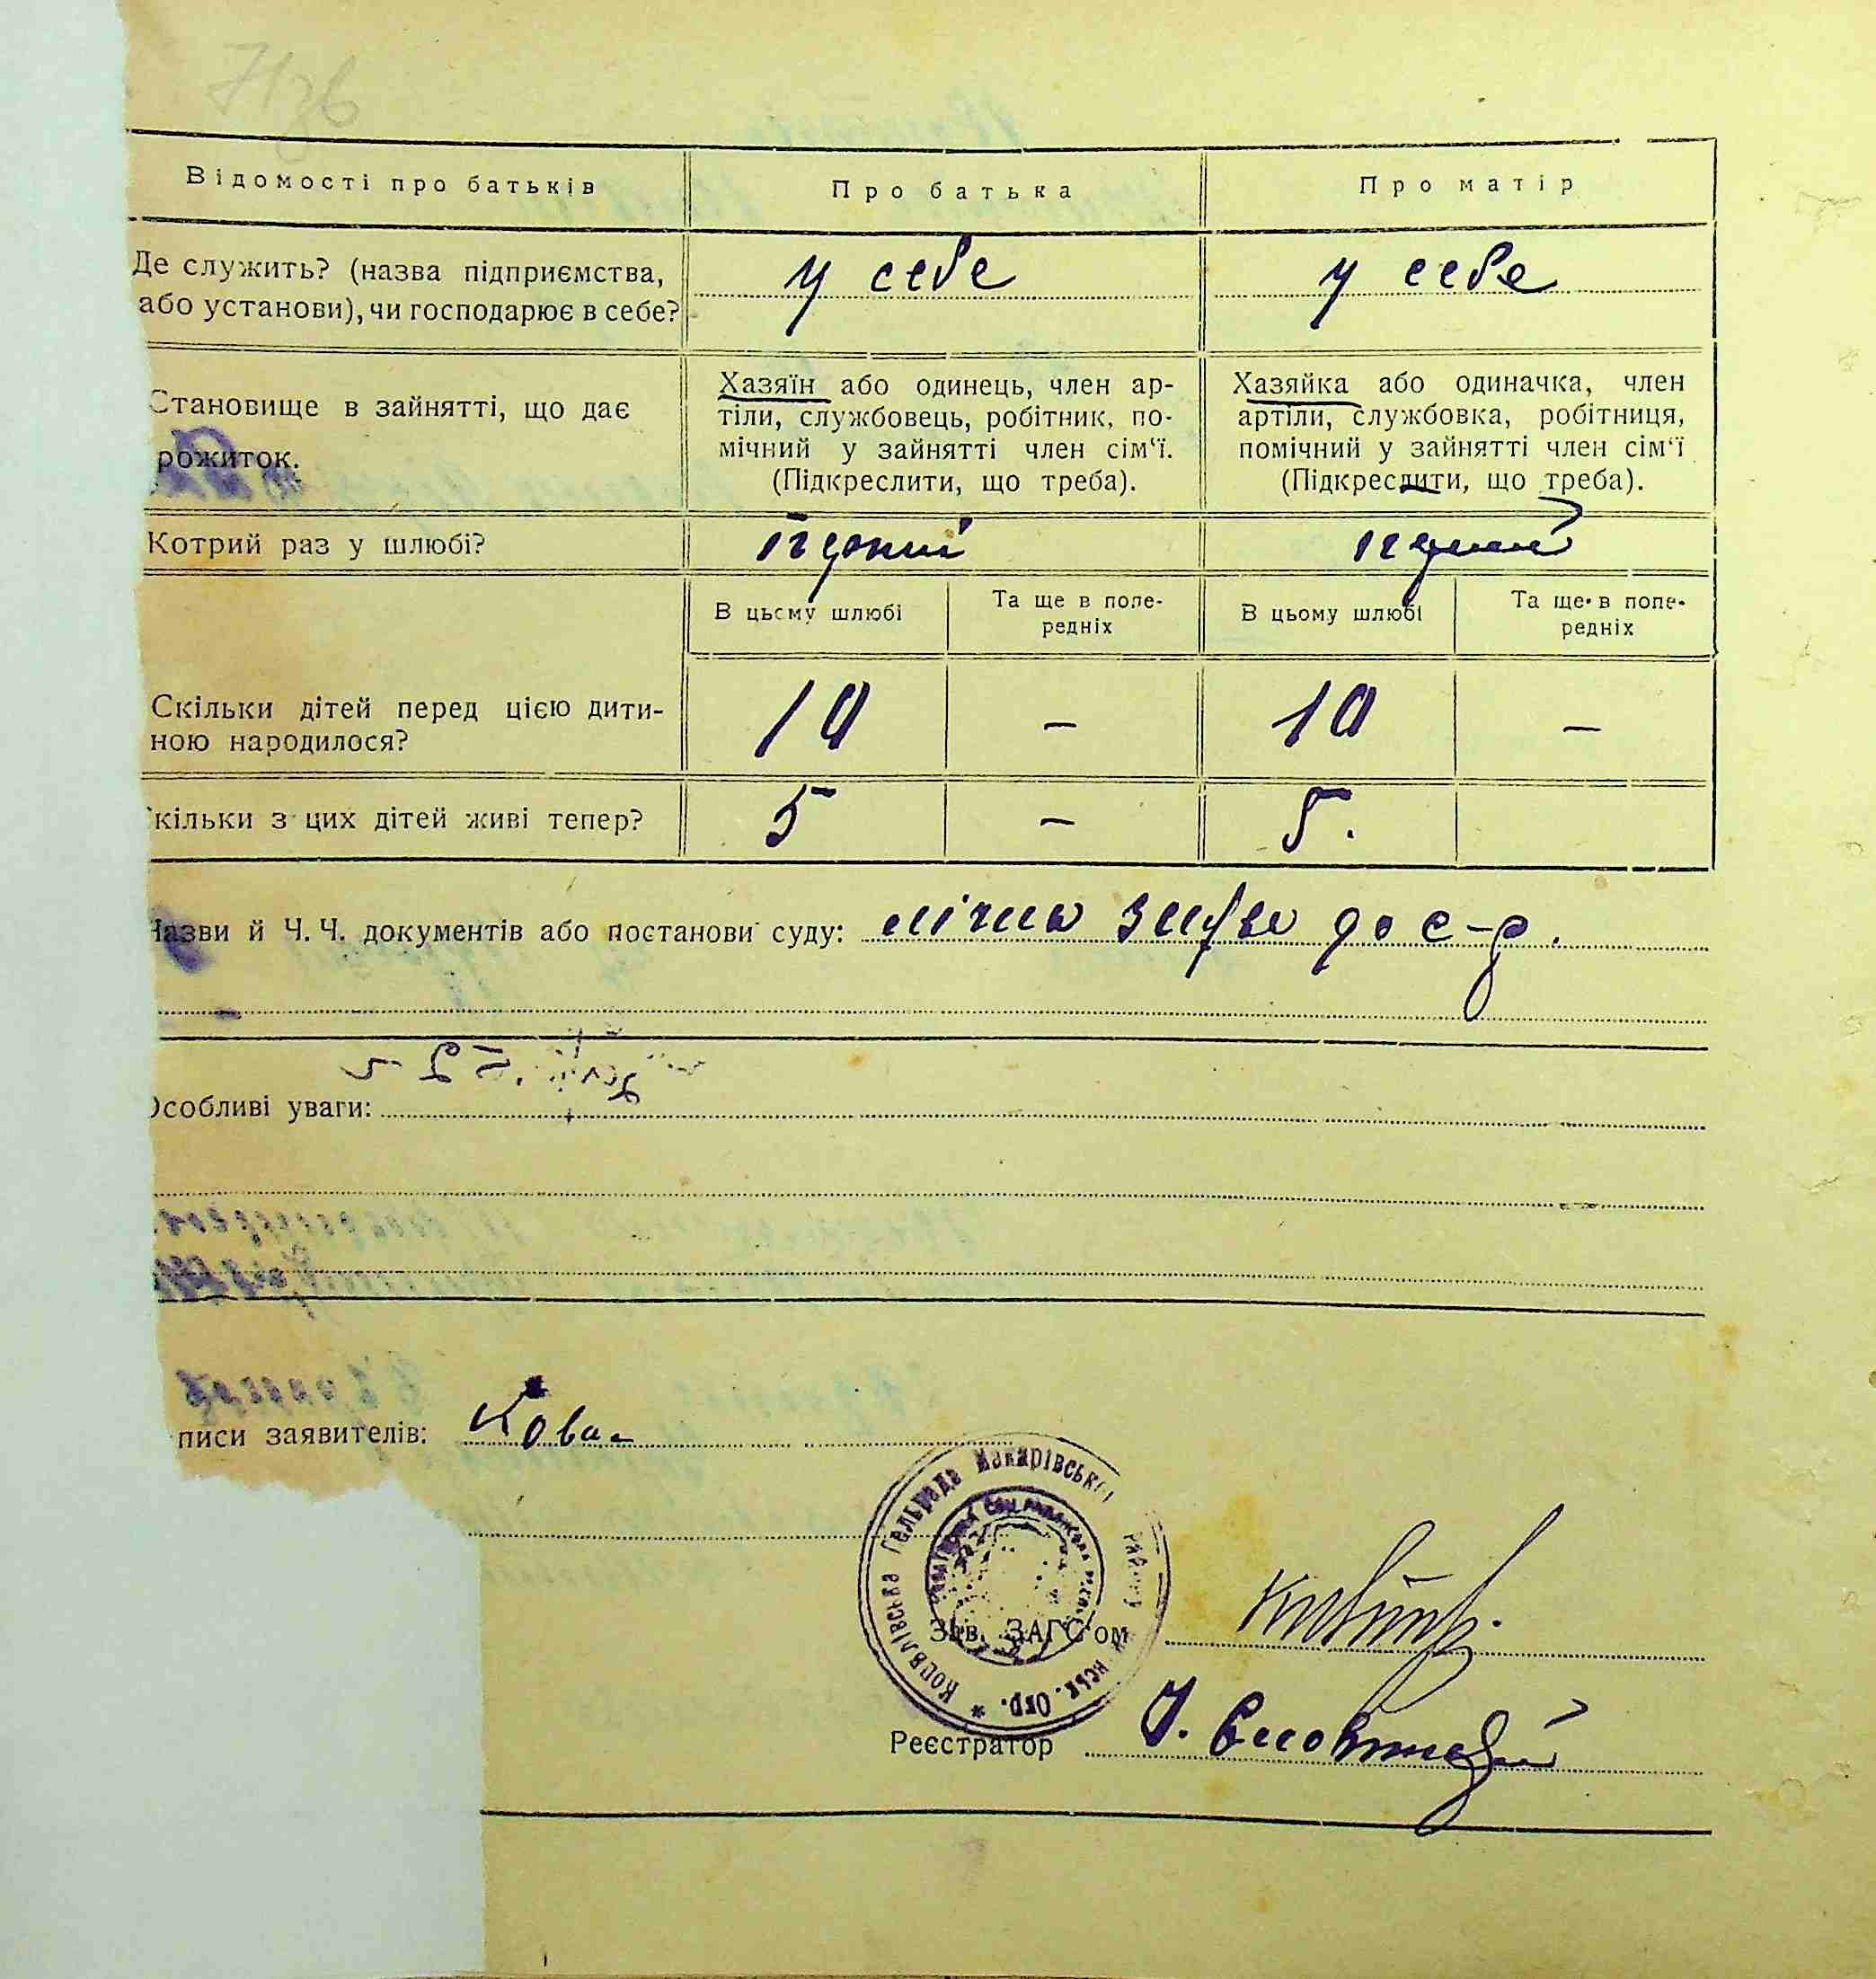 71зв
Відомості про батьків
Про батька
Про матір
Де служить? (назва підприємства,
або установи), чи господарює в себе?
у себе
у себе
Становище в зайнятті, що дає
рожиток.
Хазяїн або одинець, член ар-
тіли, службовець, робітник, по-
мічний у зайнятті член сім'ї.
(Підкреслити, що треба).
Хазяйка або одиначка, член
артіли, службовка, робітниця,
помічний у зайнятті член сім'ї
(Підкреслити, що треба).
Котрий раз у шлюбі?
В цьому шлюбі
Та ще в попе-
редніх
В цьому шлюбі
Та ще в попе-
редніх
Скільки дітей перед цією дити-
ною народилося?
10
–
10
–
кільки з цих дітей живі тепер?
5
–
5.
Назви й Ч. Ч. документів або постанови суду: лічна заява до с-р.
Особливі уваги:
писи заявителів: Кова
Копилівська сільрада Макарівського району
Зав. ЗАГС'ом
Реєстратор